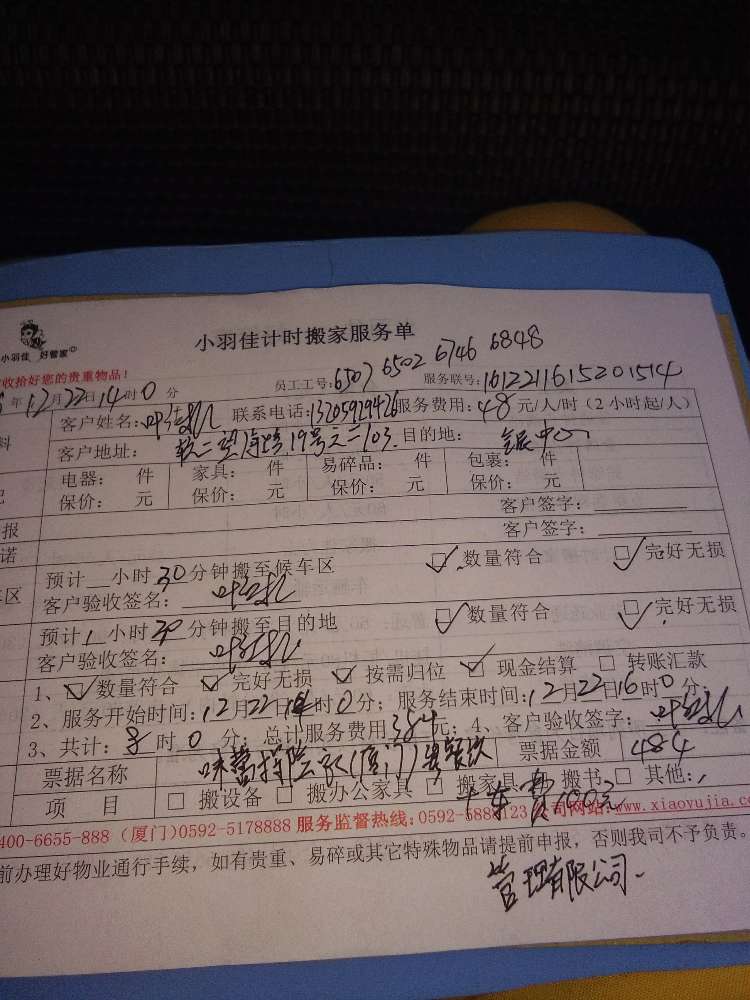 小羽佳 好管家
小羽佳计时搬家服务单
收拾好您的贵重物品！
员工工号：6507 6502 6746 6848
年12月22日14时0分 服务联号：1612211615201514
客户姓名： 联系电话：13205929426 服务费用：48元/人/时（2小时起/人）
客户地址：软二望海路19号之二103. 目的地： 中心
电器： 件 家具： 件 易碎品： 件 包裹： 件
保价： 元 保价： 元 保价： 元 保价： 元
报 客户签字：
诺 客户签字：
预计 小时30分钟搬至候车区 数量符合 完好无损
车区 客户验收签名：
预计1小时30分钟搬至目的地 数量符合 完好无损
客户验收签名：
1、 数量符合 完好无损 按需归位 现金结算 转账汇款
2、服务开始时间：12月22日14时0分；服务结束时间：12月22日16时0分；
3、共计：8时0分；总计服务费用384元；4、客户验收签字：
票据名称 （厦门） 票据金额 484
项 目 搬设备 搬办公家具 搬家具 搬书 其他：
卡车费100元
400-6655-888（厦门）0592-5178888 服务监督热线：0592-5888123 公司网站：www.xiaoyujia.com
前办理好物业通行手续，如有贵重、易碎或其它特殊物品请提前申报，否则我司不予负责。
管理有限公司.